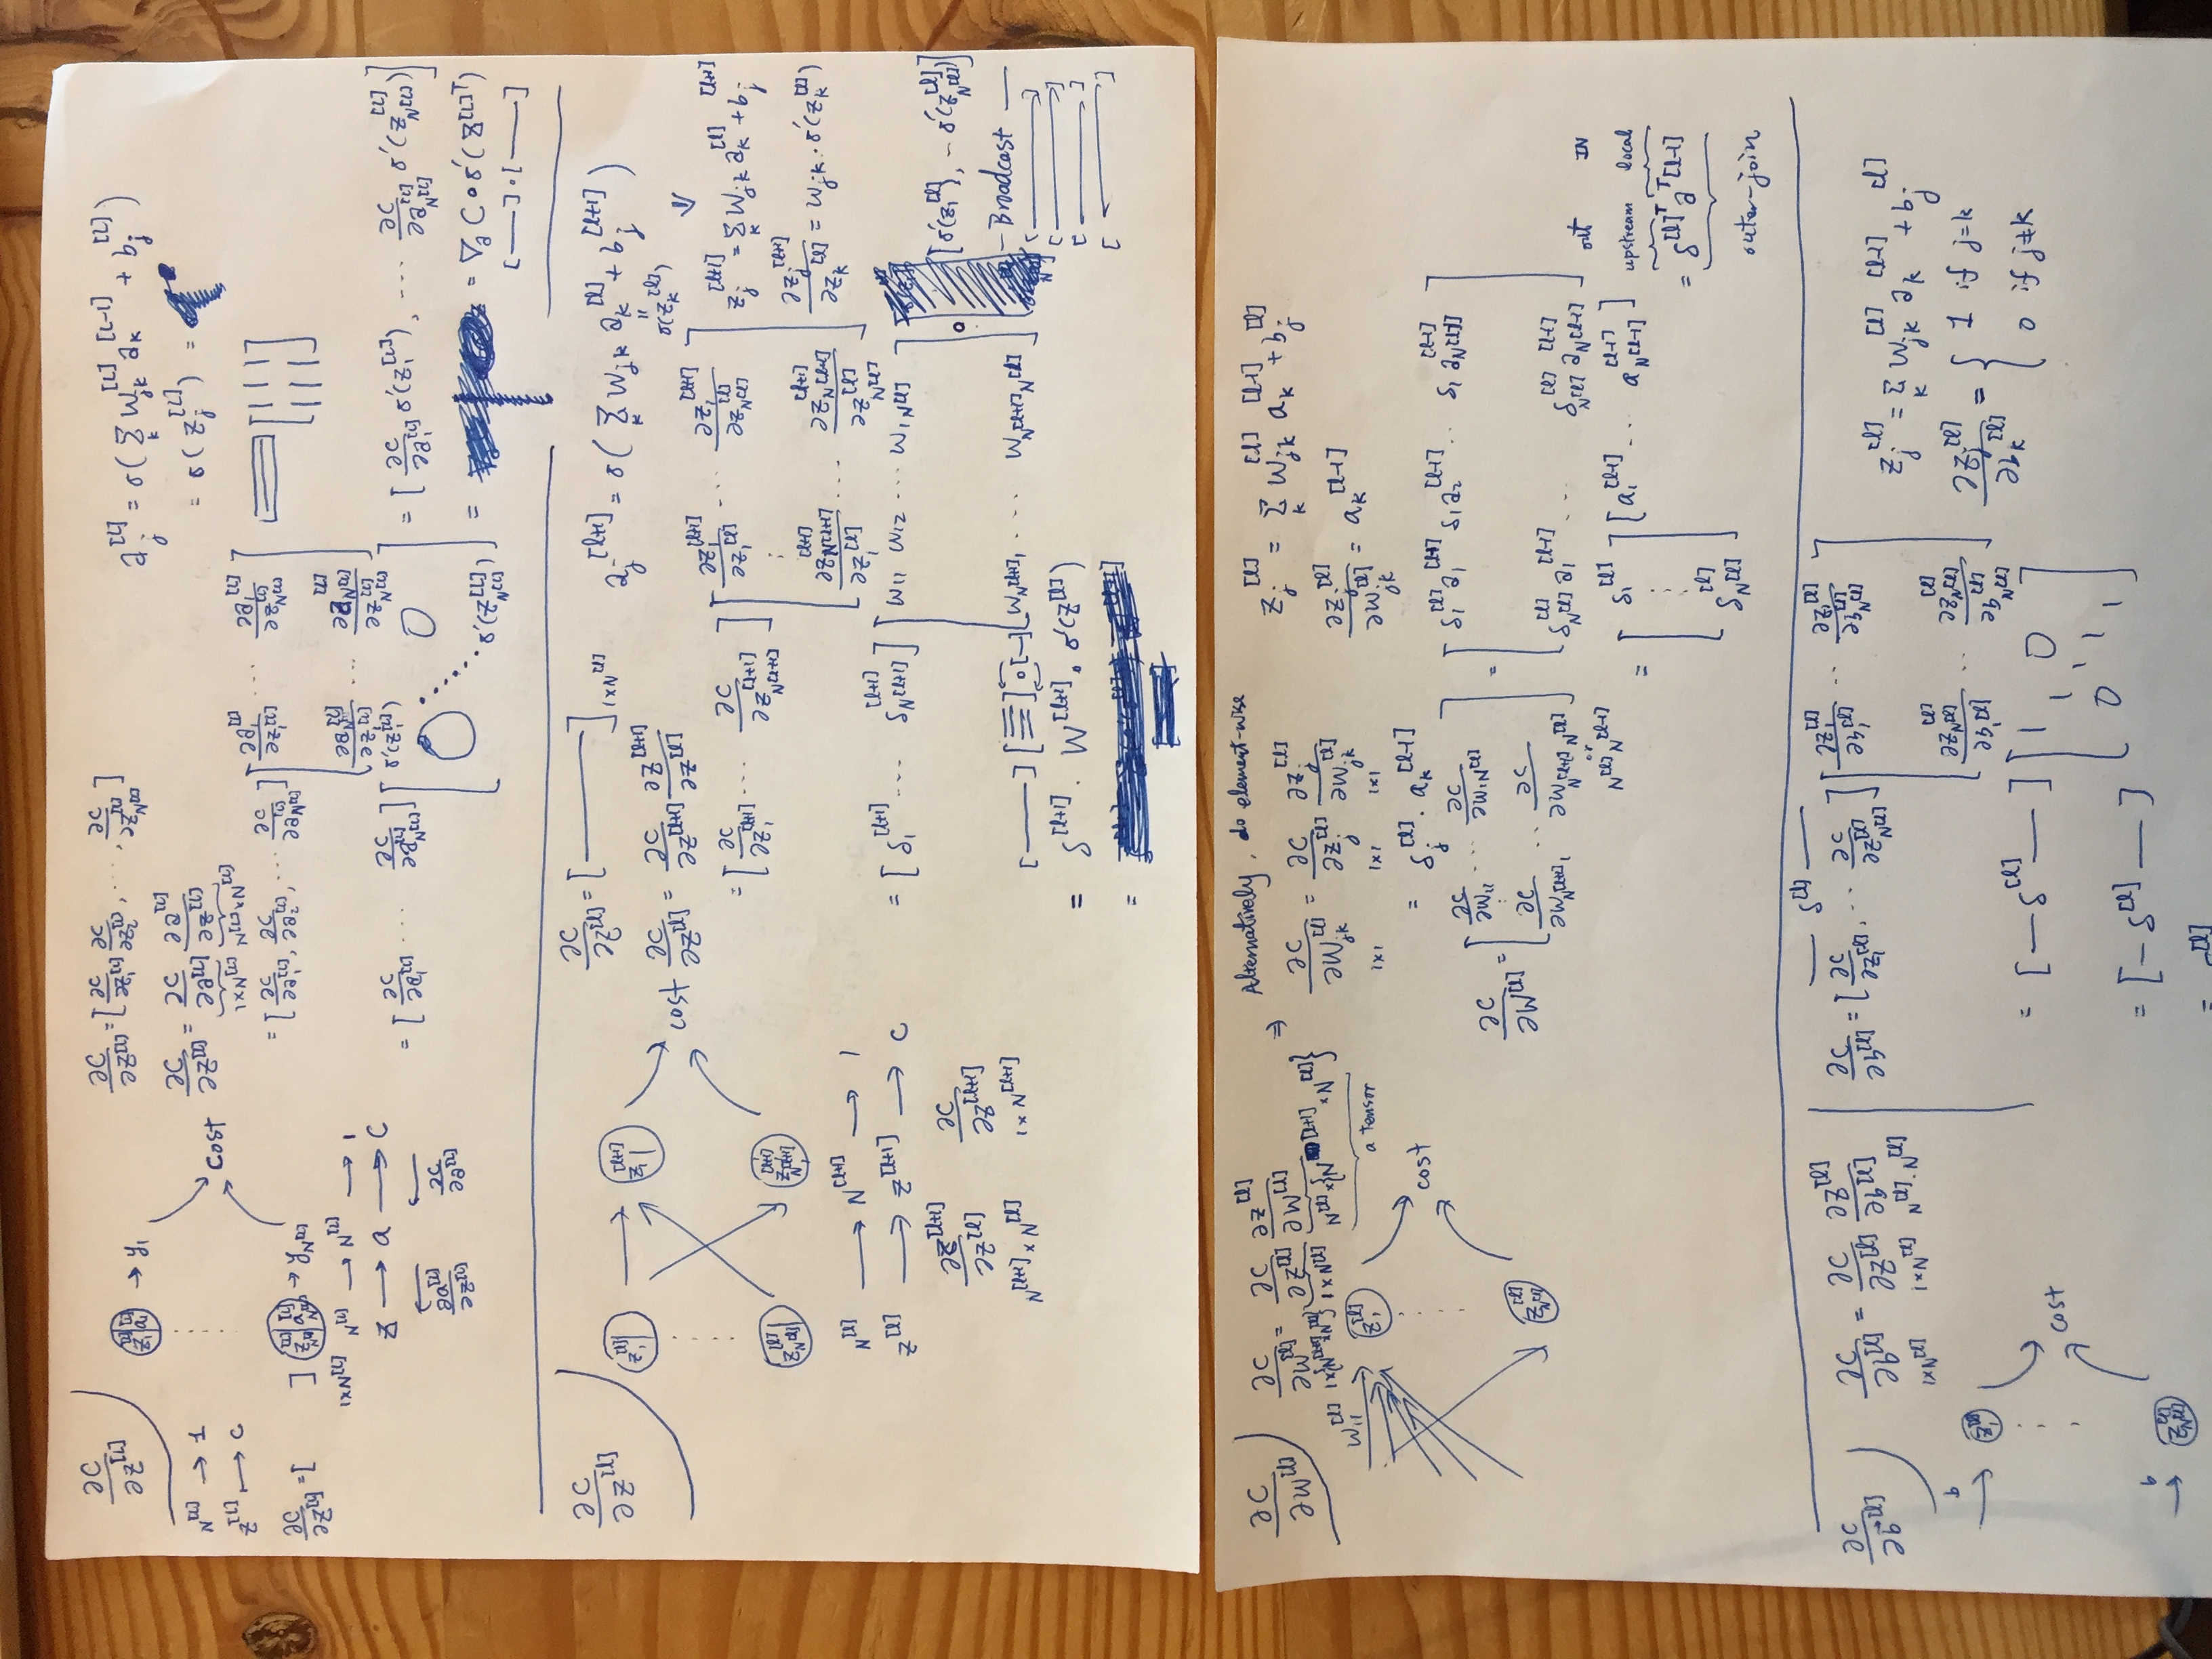 ∂C/∂z^[L]
z_1^[L] | a_1^[L] → y_1
N^[L] → 1
z^[L] → C
cost
∂C/∂z^[L] = [ ]
1×N^[L]
z_N^[L]^[L] | a_N^[L]^[L] → y_N^[L]
N^[L] → N^[L] → 1
z → a → C
∂a^[L]/∂z^[L] ∂C/∂a^[L]
∂C/∂z^[L] = [∂C/∂z_1^[L] ∂C/∂z_2^[L], ..., ∂C/∂z_N^[L]^[L]]
∂C/∂z^[L] = ∂C/∂a^[L] ∂a^[L]/∂z^[L]
1×N^[L] N^[L]×N^[L]
= [∂C/∂a_1^[L], ∂C/∂a_2^[L], ... ∂C/∂a_N^[L]^[L]] [∂a_1^[L]/∂z_1^[L] ... ∂a_1^[L]/∂z_N^[L]^[L]
∂a_N^[L]^[L]/∂z_1^[L] ... ∂a_N^[L]^[L]/∂z_N^[L]^[L]]
= [∂C/∂a_1^[L] ... ∂C/∂a_N^[L]^[L]] [σ'(z_1^[L]) 0
0 σ'(z_N^[L]^[L])]
= [∂C/∂a_1^[L] σ'(z_1^[L]), ... ∂C/∂a_N^[L]^[L] σ'(z_N^[L]^[L])]
= = ∇_a C ∘ σ'(z^[L]T)
[—]·[—]
a_j^[L] = σ(Σ_k w_jk^[L] a_k^[L-1] + b_j^[L])
= σ(z_j^[L]) =
∂C/∂z^[l]
z_1^[l] | z_1^[l+1] |
cost
z_N^[l]^[l] | z_N^[l+1]^[l+1]
N^[l] → N^[l+1] → 1
z^[l] → z^[l+1] → C
∂z^[l+1]/∂z^[l] ∂C/∂z^[l+1]
N^[l+1]×N^[l] 1×N^[l+1]
∂C/∂z^[l] = [—]1×N^[l]
∂C/∂z^[l] = ∂C/∂z^[l+1] ∂z^[l+1]/∂z^[l]
= [∂C/∂z_1^[l+1] ... ∂C/∂z_N^[l+1]^[l+1]] [∂z_1^[l+1]/∂z_1^[l] ... ∂z_1^[l+1]/∂z_N^[l]^[l]
∂z_N^[l+1]^[l+1]/∂z_1^[l] ... ∂z_N^[l+1]^[l+1]/∂z_N^[l]^[l]]
= [δ_1^[l+1] ... δ_N^[l+1]^[l+1]] [w_11 w_12 ... w_1N^[l]
w_N^[l+1]1 ... w_N^[l+1]N^[l]] ∘ [σ'(z_1^[l]), – σ'(z_N^[l]^[l])]
— Broadcast —
[—] [≡] ∘ [—]
= δ^[l+1] · W^[l+1] ∘ σ'(z^[l])
=
a_j^[l+1] = σ(Σ_k w_jk a_k^[l] + b_j^[l+1])
"
σ(z_k^[l])
⇓
z_j^[l+1] = Σ_k w_jk a_k^[l] + b_j^[l+1]
∂z_j^[l+1]/∂z_k^[l] = w_jk · σ'(z_k^[l])
∂C/∂W^[l]
∂C/∂W^[l] = ∂C/∂z^[l] ∂z^[l]/∂W^[l] ⇒
1×{N^[l+1]×N^[l]} 1×N^[l] N^[l]×{N^[l+1]×N^[l]}
a tensor
w_11^[l]
z_1^[l]
cost
z_N^[l]^[l]
Alternatively, do element-wise
∂C/∂w_jk^[l] = ∂C/∂z_j^[l] ∂z_j^[l]/∂w_jk^[l]
1×1 1×1 1×1
= δ_j^[l] · a_k^[l-1]
z_j^[l] = Σ_k w_jk^[l] a_k^[l-1] + b_j^[l]
∂z_j^[l]/∂w_jk^[l] = a_k^[l-1]
∂C/∂W^[l] = [∂C/∂w_11 ... ∂C/∂w_1N^[l]
∂C/∂w_N^[l+1]1 ... ∂C/∂w_N^[l+1]N^[l]]
or
N^[l]N^[l-1]
= [δ_1^[l]a_1^[l-1] δ_1a_2^[l-1] ... δ_1 a_N^[l-1]
δ_N^[l]^[l] a_1^[l-1] ... δ_N^[l]^[l] a_N^[l-1]^[l-1]]
= [δ_1^[l] ⋮ δ_N^[l]^[l]] [a_1^[l-1] ... a_N^[l-1]^[l-1]]
out IN
upstream local
= δ^[l]T a^T[l-1]
outer-join
∂C/∂b^[l]
∂C/∂b^[l] = ∂C/∂z^[l] ∂z^[l]/∂b^[l]
1×N^[l] 1×N^[l] N^[l]·N^[l]
b → z_1^[l]
cost
b → z_N^[l]^[l]
— δ^[l] —
∂C/∂b^[l] = [∂C/∂z_1^[l], ... ∂C/∂z_N^[l]^[l]] [∂z_1^[l]/∂b_1^[l] ... ∂z_1^[l]/∂b_N^[l]^[l]
∂z_N^[l]^[l]/∂b_1^[l] ... ∂z_N^[l]^[l]/∂b_N^[l]^[l]]
= [— δ^[l] —] [1 0
0 1]
= [– δ^[l] —]
= δ^[l]
z_j^[l] = Σ_k w_jk^[l] a_k^[l-1] + b_j^[l]
∂z_j^[l]/∂b_k^[l] = { 1 if j=k
0 if j≠k